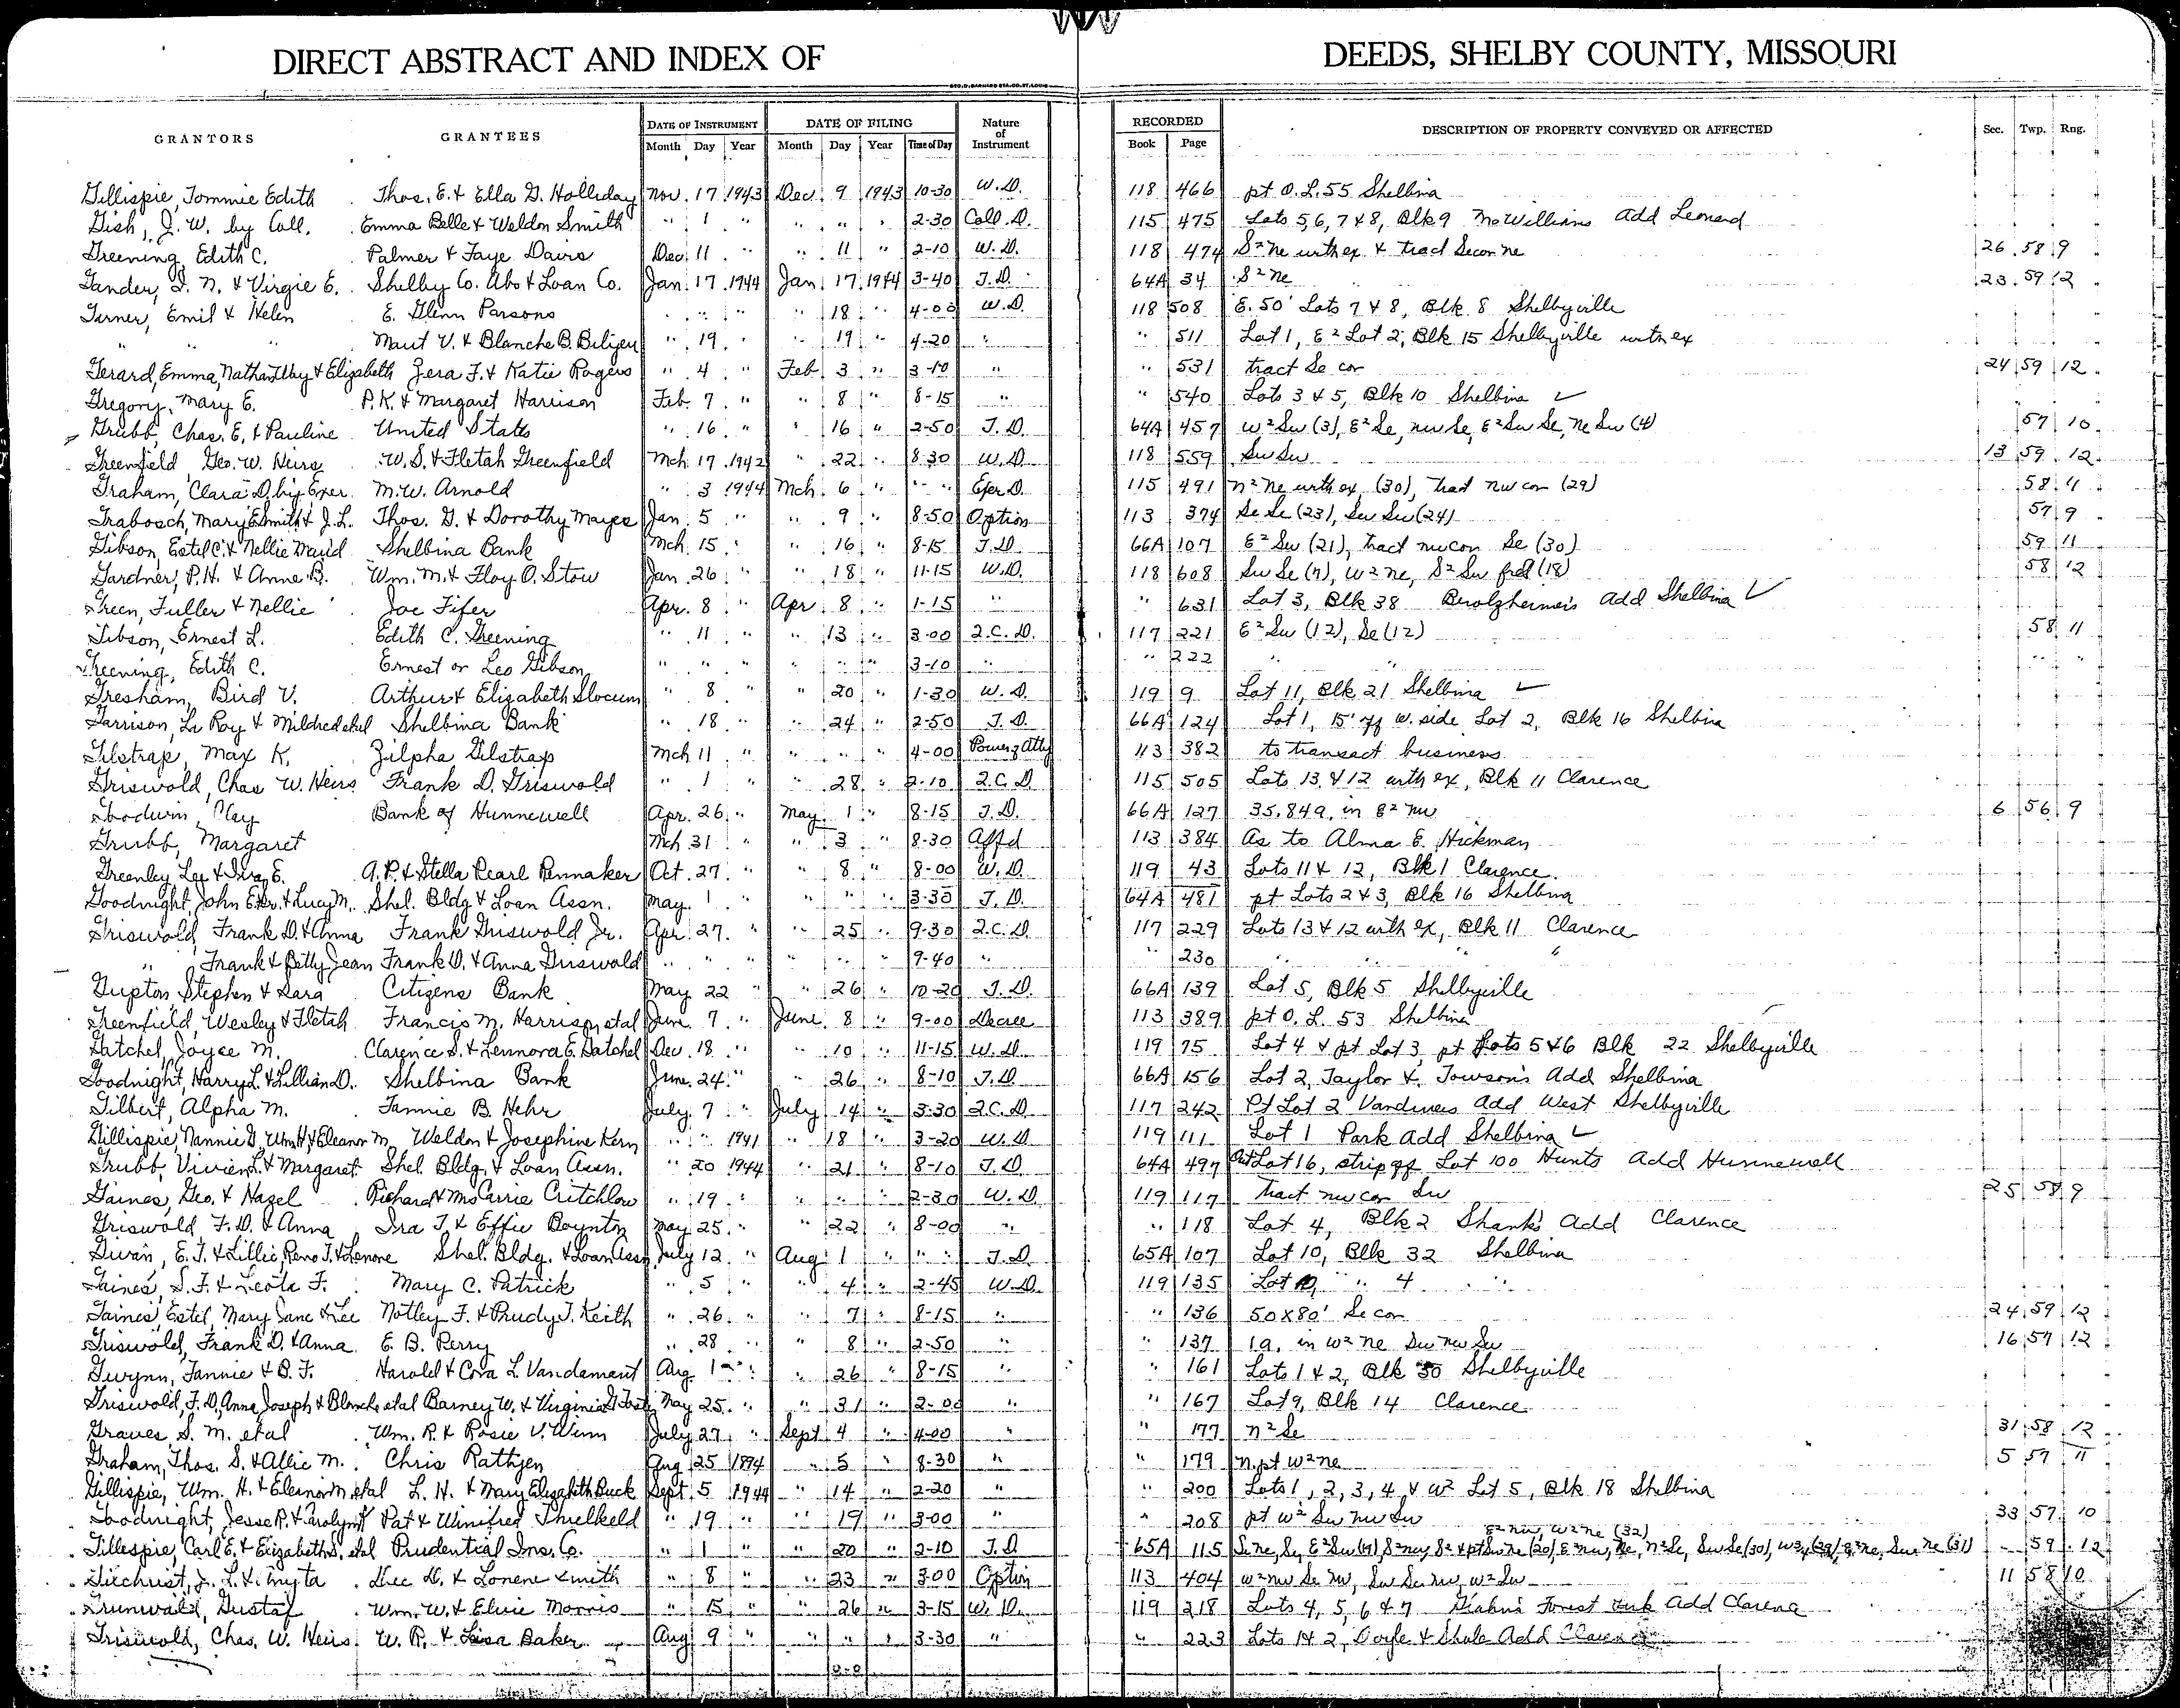 DIRECT ABSTRACT AND INDEX OF DEEDS, SHELBY COUNTY, MISSOURI
GRANTORS GRANTEES DATE OF INSTRUMENT DATE OF FILING Nature of Instrument RECORDED DESCRIPTION OF PROPERTY CONVEYED OR AFFECTED Sec. Twp. Rng.
Month Day Year Month Day Year Time of Day Book Page
Gillispie, Tommie Edith Thos. E. & Ella G. Holliday Nov. 17 1943 Dec. 9 1943 10-30 W.D. 118 466 pt O.L. 55 Shelbina
Gish, J. W. by Coll. Emma Belle & Weldon Smith " 1 " " " " 2-30 Coll. D. 115 475 Lots 5, 6, 7 & 8, Blk 9 McWilliams Add Leonard
Greening, Edith C. Palmer & Faye Davis Dec. 11 " " 11 " 2-10 W.D. 118 474 S² Ne with ex & tract Secor ne 26 58 9
Gander, I. N. & Virgie E. Shelby Co. Abs & Loan Co. Jan. 17 1944 Jan. 17 1944 3-40 T.D. 64A 34 S² ne 23 59 12
Gerner, Emil & Helen E. Glenn Parsons " " " " 18 " 4-00 W.D. 118 508 E. 50' Lots 7 & 8, Blk 8 Shelbyville
" " " V. & Blanche B. " 19 " " 19 " 4-20 " " 511 Lot 1, E² Lot 2, Blk 15 Shelbyville with ex
Gerard, Emma, Nathan & Elizabeth Zera F. & Katie Rogers " 4 " Feb. 3 " 3-10 " " 531 tract Se cor 24 59 12
Gregory, Mary E. P.K. & Margaret Harrison Feb. 7 " " 8 " 8-15 " " 540 Lots 3 & 5, Blk 10 Shelbina ✓
Grubb, Chas. E. & Pauline United States " 16 " " 16 " 2-50 T.D. 64A 457 W² Sw (3), E² Se, nw Se, E² Sw Se, Ne Sw (4) 57 10
Greenfield, Geo. W. Heirs W. S. & Fletah Greenfield Mch. 17 1942 " 22 " 8-30 W.D. 118 559 Sw Sw 13 59 12
Graham, Clara D. by Exer. M.W. Arnold " 3 1944 Mch. 6 " " " Exer D. 115 491 N² Ne with ex (30), tract nw cor (29) 58 11
Grabosch, Mary E Smith & J.L. Thos. G. & Dorothy Mayes Jan. 5 " " 9 " 8-50 Option 113 374 Se Se (23), Sw Sw (24) 57 9
Gibson, Estel C. & Nellie Maud Shelbina Bank Mch. 15 " " 16 " 8-15 T.D. 66A 107 E² Sw (21), tract nw cor Se (30) 59 11
Gardner, P.H. & Anne B. Wm. M. & Floy O. Stow Jan. 26 " " 18 " 11-15 W.D. 118 608 Sw Se (7), W² ne, S² Sw frcl (18) 58 12
Green, Fuller & Nellie Joe Fifer Apr. 8 " Apr. 8 " 1-15 " " 631 Lot 3, Blk 38 Berolzheimer's Add Shelbina ✓
Gibson, Ernest L. Edith C. Greening " 11 " " 13 " 3-00 Q.C.D. 117 221 E² Sw (12), Se (12) 58 11
Greening, Edith C. Ernest or Leo Gibson " " " " " " 3-10 " " 222 " " " "
Gresham, Bird V. Arthur & Elizabeth Slocum " 8 " " 20 " 1-30 W.D. 119 9 Lot 11, Blk 21 Shelbina ✓
Garrison, Le Roy & Mildred etal Shelbina Bank " 18 " " 24 " 2-50 T.D. 66A 124 Lot 1, 15' off W. side Lot 2, Blk 16 Shelbina
Gilstrap, Max K. Zilpha Gilstrap Mch 11 " " " " 4-00 Power of Atty 113 382 to transact business
Griswold, Chas W. Heirs Frank D. Griswold " 1 " " 28 " 2-10 Q.C.D. 115 505 Lots 13 & 12 with ex, Blk 11 Clarence
Goodwin, Clay Bank of Hunnewell Apr. 26 " May 1 " 8-15 T.D. 66A 127 35.84a, in E² nw 6 56 9
Grubb, Margaret Mch 31 " " 3 " 8-30 Affd 113 384 As to Alma E. Hickman
Greenley Lee & Iva E. A.P. & Stella Pearl Pennaker Oct. 27 " " 8 " 8-00 W.D. 119 43 Lots 11 & 12, Blk 1 Clarence
Goodnight, John & Lucy M. Shel. Bldg & Loan Assn. May 1 " " " " 3-30 T.D. 64A 481 pt Lots 2 & 3, Blk 16 Shelbina
Griswold, Frank D. & Anna Frank Griswold Jr. Apr. 27 " " 25 " 9-30 Q.C.D. 117 229 Lots 13 & 12 with ex, Blk 11 Clarence
" Frank & Betty Jean Frank D. & Anna Griswold " " " " " " 9-40 " " 230 " " "
Gupton, Stephen & Sara Citizens Bank May 22 " " 26 " 10-20 T.D. 66A 139 Lot 5, Blk 5 Shelbyville
Greenfield, Wesley & Fletah Francis M. Harrison, etal June 7 " June 8 " 9-00 Decree 113 389 pt O.L. 53 Shelbina
Gatchel, Joyce M. Clarence S. & Lennora E. Gatchel Dec. 18 " " 10 " 11-15 W.D. 119 75 Lot 4 & pt Lot 3, pt Lots 5 & 6 Blk 22 Shelbyville
Goodnight, Harry L. & Lillian D. Shelbina Bank June 24 " " 26 " 8-10 T.D. 66A 156 Lot 2, Taylor & Towson's Add Shelbina
Gilbert, Alpha M. Fannie B. Hehr July 7 " July 14 " 3-30 Q.C.D. 117 242 Pt Lot 2 Vandivers Add West Shelbyville
Gillispie, Nannie D, Wm H. & Eleanor M. Weldon & Josephine Kern " " 1941 " 18 " 3-20 W.D. 119 111 Lot 1 Park Add Shelbina ✓
Grubb, Vivien L. & Margaret Shel. Bldg. & Loan Assn. " 20 1944 " 21 " 8-10 T.D. 64A 497 Out Lot 16, strip off Lot 100 Hunts Add Hunnewell
Gaines, Geo. & Hazel Richard & Mrs Carrie Critchlow " 19 " " " " 2-30 W.D. 119 117 tract nw cor Sw 25 58 9
Griswold F.D. & Anna Ira T. & Effie Boynton May 25 " " 22 " 8-00 " " 118 Lot 4, Blk 2 Shank's Add Clarence
Givan, E.T. & Lillie, Reno T. & Lenore Shel. Bldg. & Loan Assn July 12 " Aug 1 " " " T.D. 65A 107 Lot 10, Blk 32 Shelbina
Gaines, S.F. & Leota F. Mary C. Patrick " 5 " " 4 " 2-45 W.D. 119 135 Lot " 4 "
Gaines, Estel, Mary Jane & Lee Notley F. & Prudy J. Keith " 26 " " 7 " 8-15 " " 136 50x80' Se cor 24 59 12
Griswold, Frank D. & Anna E. B. Perry " 28 " " 8 " 2-50 " " 137 1a. in W² Ne Sw nw Sw 16 57 12
Gwynn, Fannie & B.F. Harold & Cora L. Vandament Aug 1 " " 26 " 8-15 " " 161 Lots 1 & 2, Blk 30 Shelbyville
Griswold, F.D, Anna, Joseph & Blanche etal Barney W. & Virginia May 25 " " 31 " 2-00 " " 167 Lot 9, Blk 14 Clarence
Graves S. M. etal Wm. R. & Rosie V. Winn July 27 " Sept 4 " 4-00 " " 177 N² Se 31 58 12
Graham, Thos. S. & Allie M. Chris Rathjen Aug 25 1894 " 5 " 8-30 " " 179 N. pt W² ne 5 57 11
Gillispie, Wm. H. & Eleanor M etal L. H. & Mary Elizabeth Buck Sept. 5 1944 " 14 " 2-20 " " 200 Lots 1, 2, 3, 4 & W² Lot 5, Blk 18 Shelbina
Goodnight, Jesse R. & Pat & Winifred Threlkeld " 19 " " 19 " 3-00 " " 208 pt W² Sw nw Sw 33 57 10
E² nw, W² ne (32)
Gillespie, Carl E. & Elizabeth S. etal Prudential Ins. Co. " 1 " " 20 " 2-10 T.D. 65A 115 59 12
Gilchrist, J. L. & D. & Lorene Smith " 8 " " 23 " 3-00 Option 113 404 W² nw Se nw, Sw Se nw, W² Sw 11 58 10
Grunwald, Gustaf Wm. W. & Elsie Morris " 15 " " 26 " 3-15 W.D. 119 218 Lots 4, 5, 6 & 7 Forest Park Add Clarence
Griswold, Chas. W. Heirs W. R. & Baker Aug 9 " " " " 3-30 " " 223 Lots 1 & 2, Doyle & Add Clarence